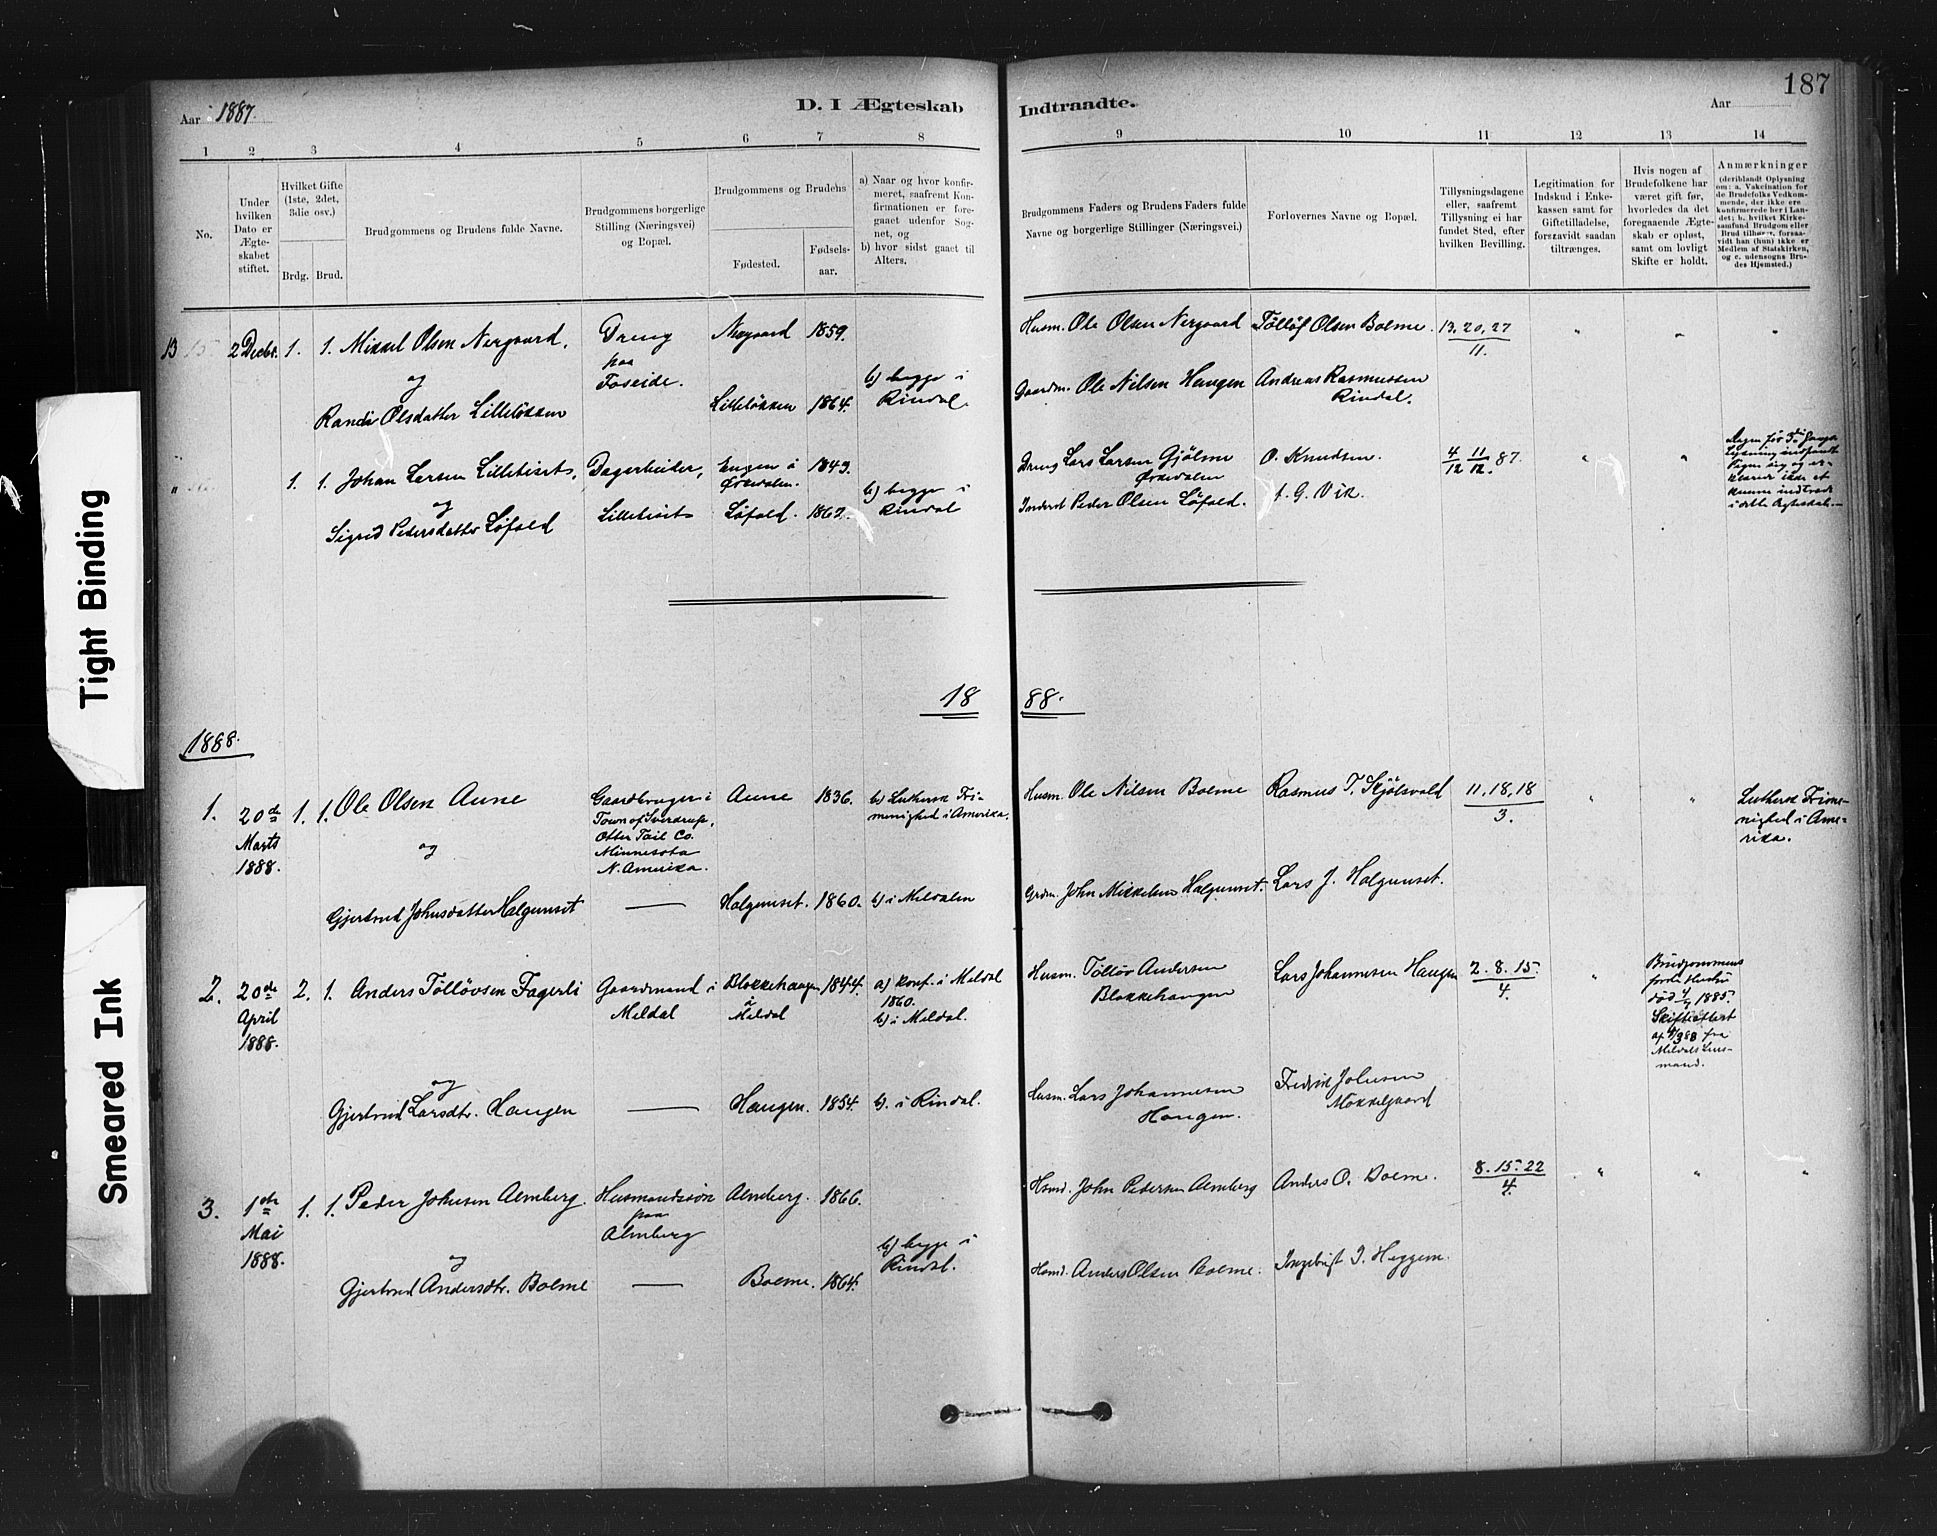 187
Aar 1887. D. I Ægteskab Indtraadte. Aar
1 2 3 4 5 6 7 8 9 10 11 12 13 14
No.
Under
hvilken
Dato er
Ægte-
skabet
stiftet.
Hvilket Gifte
(1ste, 2det,
3die osv.)
Brdg. Brud.
Brudgommens og Brudens fulde Navne.
Brudgommens borgerlige
Stilling (Næringsvei)
og Bopæl.
Brudgommens og Brudens
Fødested.
Fødsels-
aar.
a) Naar og hvor konfir-
meret, saafremt Kon-
firmationen er fore-
gaaet udenfor Sog-
net, og
b) hvor sidst gaaet til
Alters.
Brudgommens Faders og Brudens Faders fulde
Navne og borgerlige Stillinger (Næringsvei.)
Forlovernes Navne og Bopæl.
Tillysningsdagene
eller, saafremt
Tillysning ei har
fundet Sted, efter
hvilken Bevilling.
Legitimation for
Indskud i Enke-
kassen samt for
Giftetilladelse,
forsaavidt saadan
tiltrænges.
Hvis nogen af
Brudefolkene har
været gift før,
hvorledes da det
foregaaende Ægte-
skab er opløst,
samt om lovligt
Skifte er holdt.
Anmærkninger
(deriblandt Oplysning
om: a. Vakcination for
de Brudefolks Vedkom-
mende, der ikke ere
konfirmerede her i Lan-
det; b. hvilket Kirke-
samfund Brudgom eller
Brud tilhører, forsaa-
vidt han (hun) ikke er
Medlem af Statskirken,
og c. udensogns Bru-
des Hjemsted.)
13 15 2 Decbr. 1. 1. Mikkel Olsen Nergaard, Dreng Nergaard 1859. Husm. Ole Olsen Nergaard Tølløf Olsen Bolme. 13, 20, 27 " " "
11.
og paa
Foseide. b) begge i
Rindal. Gaardm. Ole Nilsen Haugen Andreas Rasmussen
Randi Olsdatter Lilleløkken Lilleløkken 1864. Rindal.
" 1. 1. Johan Larsen Lilletiset, Dagarbeider, Engen i 1843. Dreng Lars Larsen Gjølme O. Knudsen. 4/12 11/12 87. " "
Ørkedalen. Ørkedalen
og Lilletiset b) begge i
Rindal
Sigrid Pedersdatter Løfald Løfald. Inderst Peder Olsen Løfald. t. G. Vik.
Dagen før
Lysning indfandt
Pigen sig og er-
klærer ikke at
kunne indtræde
i dette Ægteskab.
18 88.
1888.
1. 20de 1. 1. Ole Olsen Aune Gaardbruger i Aune 1836. b) Luthersk Fri- Husm. Ole Nilsen Bolme Rasmus T. Skjølsvold 11, 18, 18 " "
Marts Town of Sverdrup, menighed i Amerika. 3.
1888. og Otter Tail Co.
Minnesota
N. Amerika.
Luthersk Frime-
nighed i Ame-
rika.
Gjertrud Johnsdatter Halgunset — Halgunset. 1860. b) i Meldalen Grdm. John Mikkelsen Halgunset. Lars J. Halgunset.
2. 20de 2. 1. Anders Tølløvsen Fagerli Gaardmand i Blokkehaugen 1844. a) konf. i Meldal Husm. Tølløv Andersen Lars Johannesen Haugen 2. 8. 15. "
April Meldal i 1860. Blokkehaugen 4.
1888. Meldal b) i Meldal.
Brudgommens
forrige Hustru
død 4/7 1885.
Skifteattest
af 4/3 88 fra
Meldals Lens-
mand.
og
Gjertrud Larsdtr. Haugen — Haugen. 1854. b). i Rindal. Husm. Lars Johannesen Fredrik Johnsen
Haugen. Mokkelgaard
3. 1ste 1. 1. Peder Johnsen Almberg. Husmandssøn Almberg. 1866. Hsmd. John Pedersen Almberg Anders O. Bolme. 8. 15. 22 " " "
Mai paa 4.
1888. Almberg
og b) begge i
Rindal.
Gjertrud Andersdtr. Bolme — Bolme. 1864. Hsmd. Anders Olsen Bolme. Ingebrigt I. Heggem.
Tight Binding
Smeared Ink